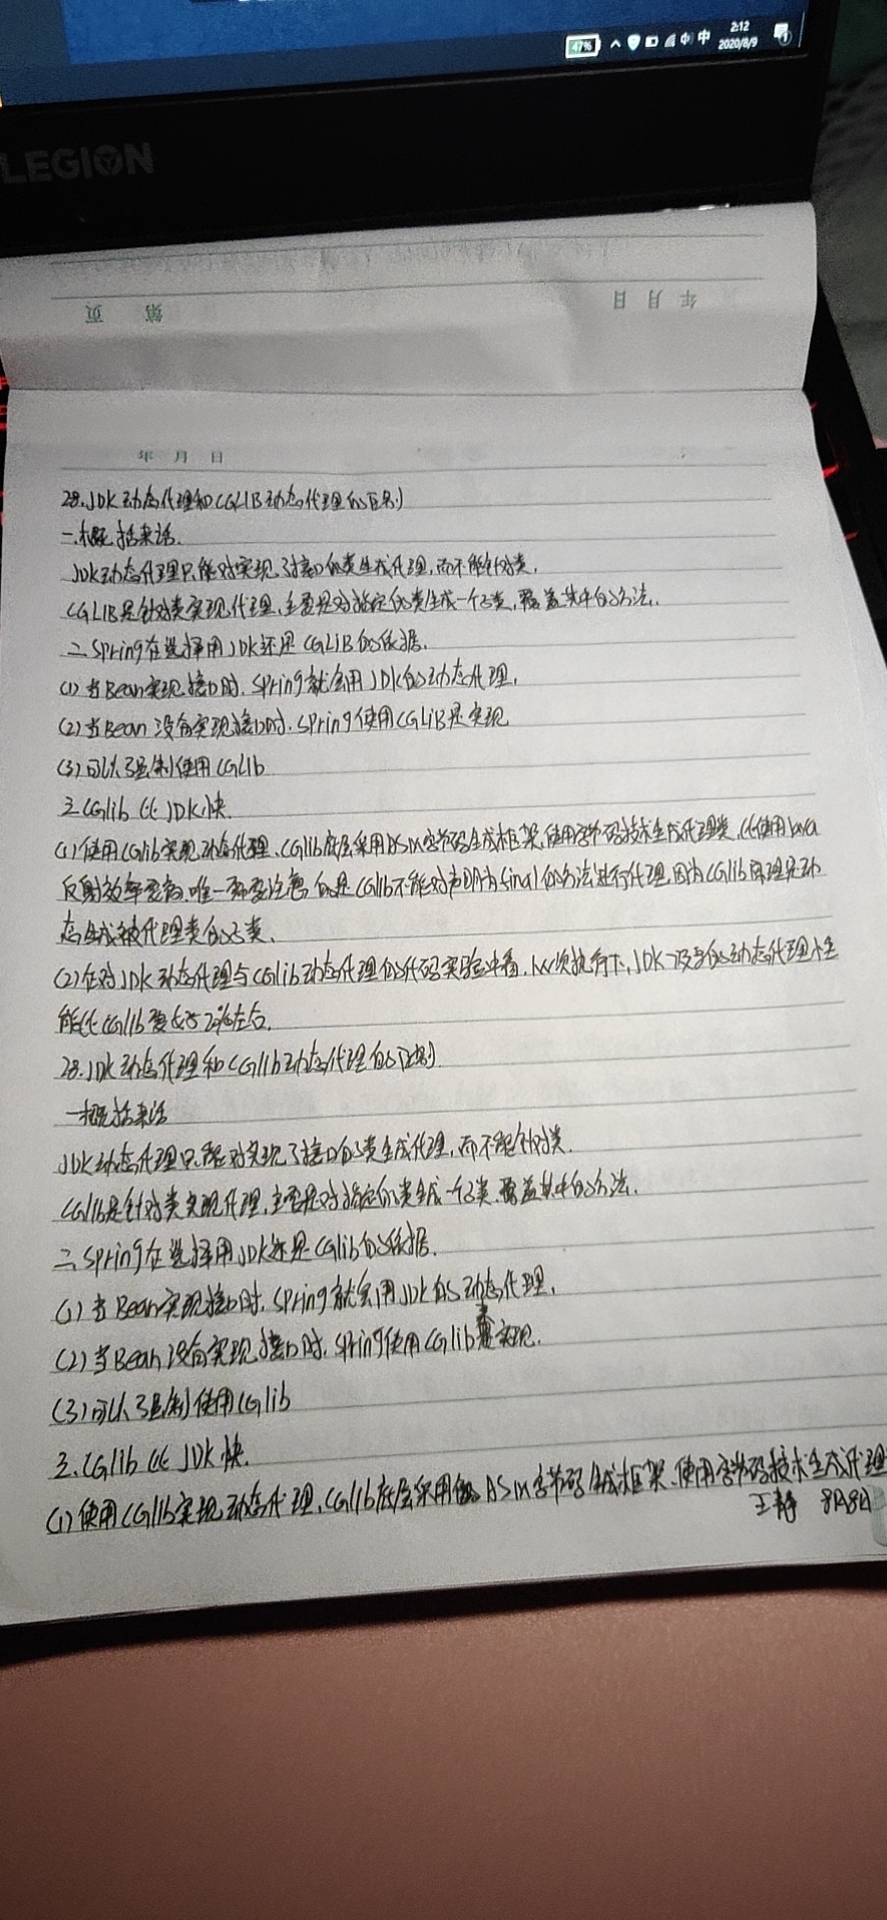 47%
中
2:12
2020/8/9
LEGION
第 页
年 月 日
年 月 日
28.JDK动态代理和CGLIB动态代理的区别
一.概括来话.
JDK动态代理只能对实现了接口的类生成代理,而不能针对类,
CGLIB是针对类实现代理,主要是对指定的类生成一个子类,覆盖其中的方法.
二Spring在选择用JDK还是CGLIB的依据.
(1)当Bean实现接口时.Spring就会用JDK的动态代理,
(2)当Bean没有实现接口时.Spring使用CGLIB是实现
(3)可以强制使用CGlib
三CGlib比JDK快.
(1)使用CGlib实现动态代理、CGlib底层采用ASM字节码生成框架,使用字节码技术生成代理类,比使用Java
反射效率要高,唯一需要注意的是CGlib不能对声明为final的方法进行代理,因为CGlib原理是动
态生成被代理类的子类、
(2)在对JDK动态代理与CGlib动态代理的代码实验中看,1W次执行下,JDK7及8的动态代理性
能比CGlib要好20%左右.
28.JDK动态代理和CGlib动态代理的区别
一概括来话
JDK动态代理只能对实现了接口的类生成代理,而不能针对类.
CGlib是针对类实现代理,主要是对指定的类生成一个子类.覆盖其中的方法.
二.Spring在选择用JDK还是CGlib的依据.
(1)当Bean实现接口时.Spring就会用JDK的动态代理,
(2)当Bean没有实现接口时,Spring使用CGlib来实现.
(3)可以强制使用CGlib
三.CGlib比JDK快.
(1)使用CGlib实现动态代理,CGlib底层采用ASM字节码生成框架、使用字节码技术生成代理
王静 8月8日